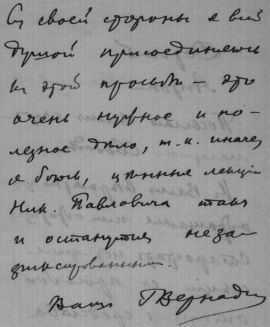 С своей стороны я всей
душой присоединяюсь
к этой просьбе – это
очень нужное и по-
лезное дело, т.к. иначе,
я боюсь, ценные лекции
Ник. Павловича так
и останутся неза
фиксированными
Ваш ГВернадский